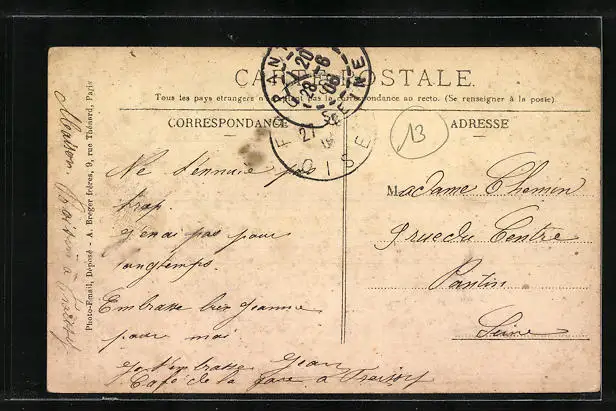 CARTE POSTALE
Tous les pays étrangers n'acceptent pas la correspondance au recto. (Se renseigner à la poste).
CORRESPONDANCE
ADRESSE
PANTIN
20
28-6
06
SEINE
27
OISE
13
Ne t'ennuie pas
trop
j'en ai pas pour
longtemps.
Embrasse bien Jeanne
pour moi
Je t'embrasse Jean
Café de la Gare à
Madame Chemin
9 rue du Centre
Pantin
Seine
Photo-Email, Déposé - A. Breger frères, 9, rue Thénard, Paris
Maison à